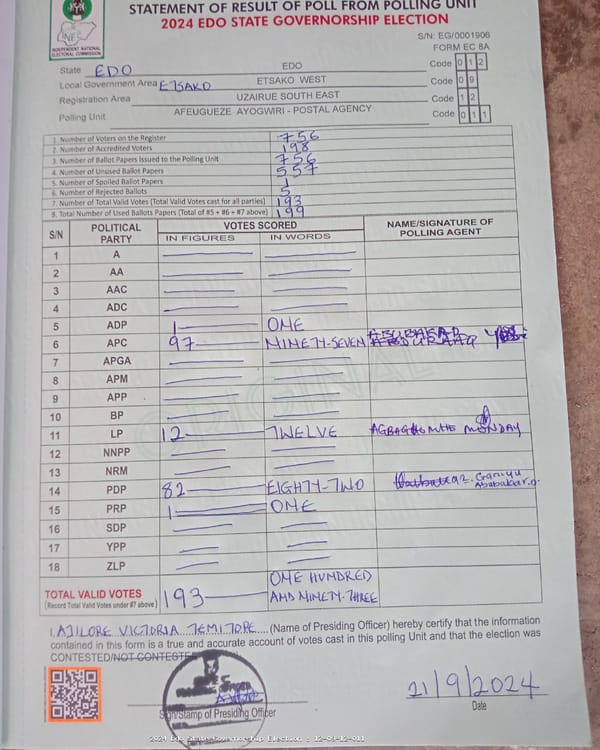 STATEMENT OF RESULT OF POLL FROM POLLING UNIT
2024 EDO STATE GOVERNORSHIP ELECTION
INEC
INDEPENDENT NATIONAL
ELECTORAL COMMISSION
S/N: EG/0001906
FORM EC 8A
State EDO EDO Code 0 1 2
Local Government Area ETSAKO ETSAKO WEST Code 0 9
Registration Area UZAIRUE SOUTH EAST Code 1 2
Polling Unit AFEUGUEZE AYOGWIRI - POSTAL AGENCY Code 0 1 1
1. Number of Voters on the Register 756
2. Number of Accredited Voters 198
3. Number of Ballot Papers Issued to the Polling Unit 756
4. Number of Unused Ballot Papers 557
5. Number of Spoiled Ballot Papers 1
6. Number of Rejected Ballots 5
7. Number of Total Valid Votes (Total Valid Votes cast for all parties) 193
8. Total Number of Used Ballots Papers (Total of #5 + #6 + #7 above) 199
S/N POLITICAL PARTY VOTES SCORED NAME/SIGNATURE OF POLLING AGENT
IN FIGURES IN WORDS
1 A
2 AA
3 AAC
4 ADC
5 ADP 1 ONE
6 APC 97 NINETY-SEVEN
7 APGA
8 APM
9 APP
10 BP
11 LP 12 TWELVE MONDAY
12 NNPP
13 NRM
14 PDP 82 EIGHTY-TWO
15 PRP 1 ONE
16 SDP
17 YPP
18 ZLP
TOTAL VALID VOTES 193 ONE HUNDRED
(Record Total Valid Votes under #7 above) AND NINETY-THREE
ORIGINAL
I, AJILORE VICTORIA TEMITOPE (Name of Presiding Officer) hereby certify that the information
contained in this form is a true and accurate account of votes cast in this polling Unit and that the election was
CONTESTED/NOT CONTESTED
21/9/2024
Sign/Stamp of Presiding Officer Date
2024 Edo State Governorship Election : 12-09-12-011